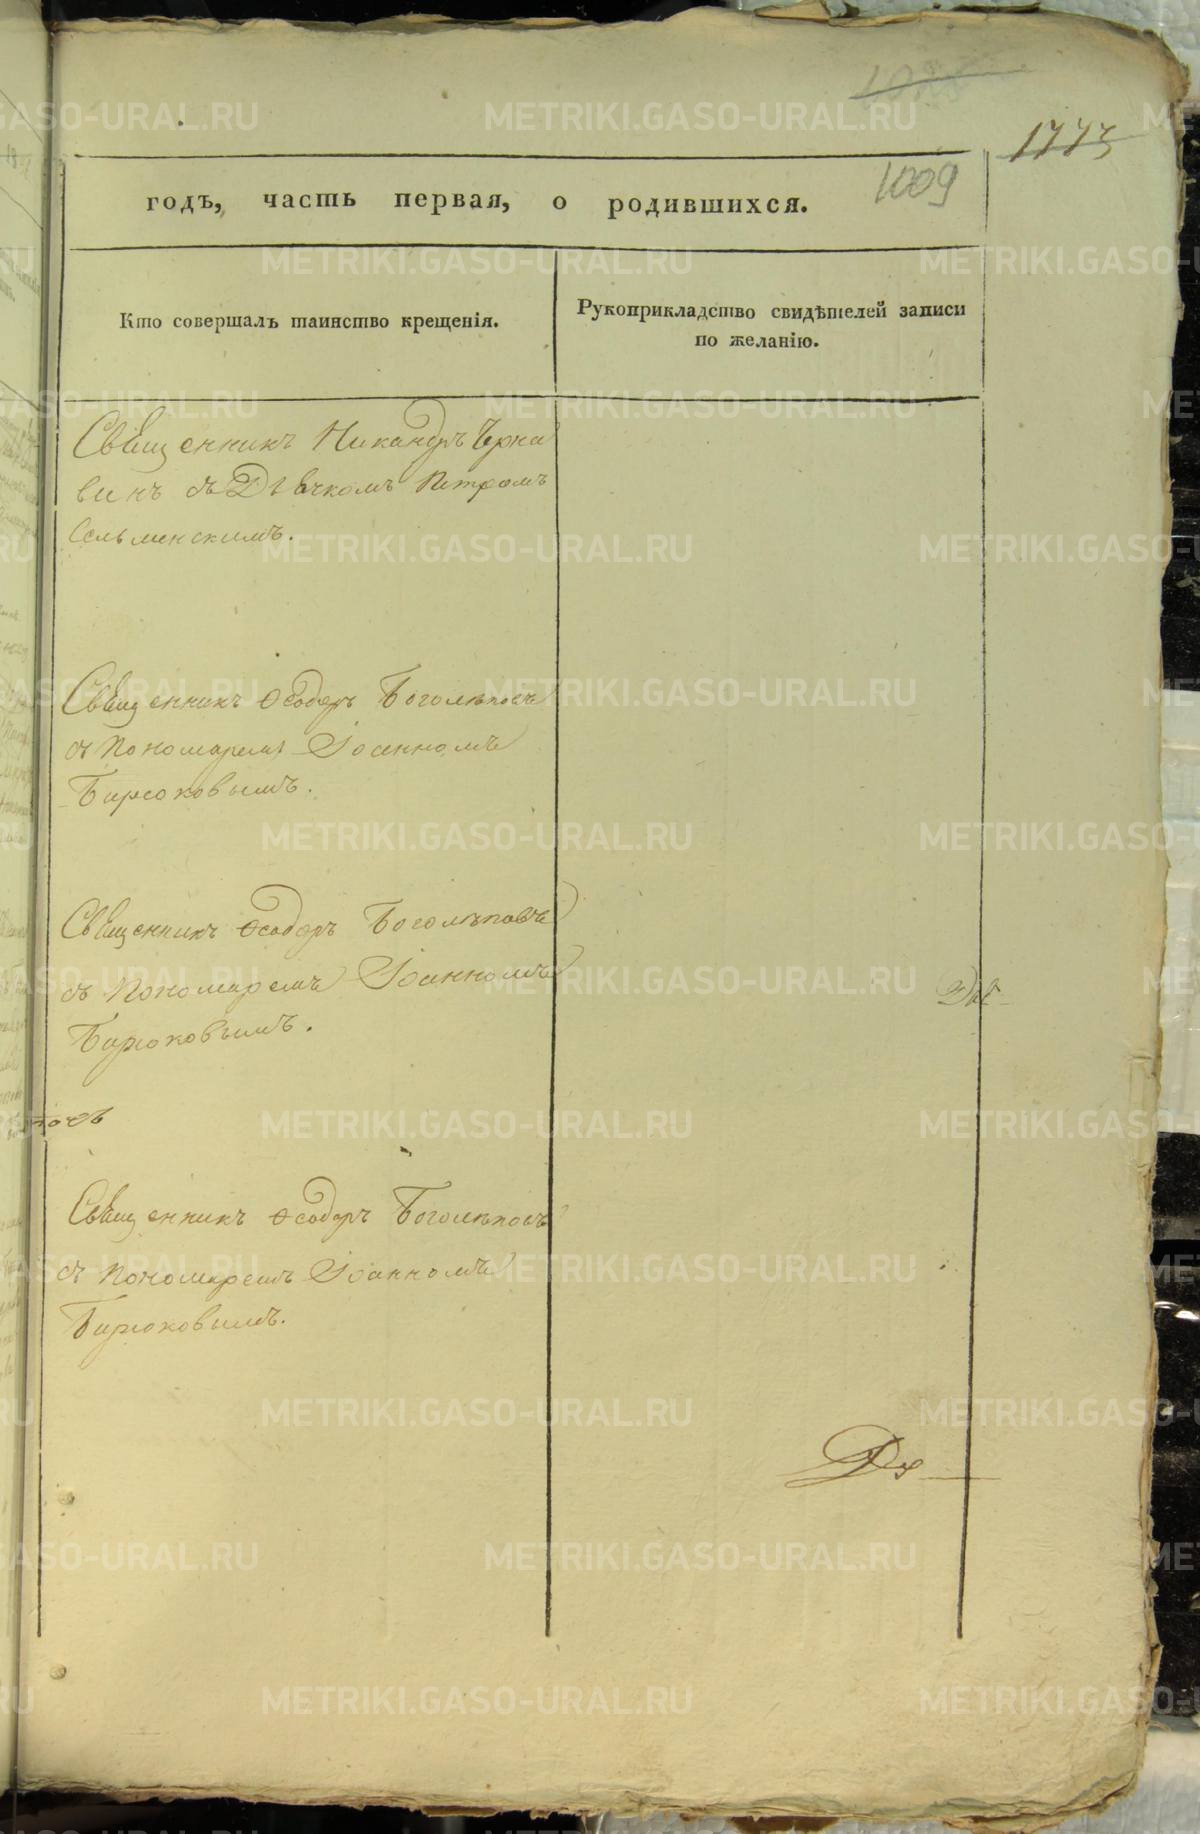 1773
1009
годъ, часть первая, о родившихся.
Кто совершалъ таинство крещенія.
Рукоприкладство свидѣтелей записи
по желанію.
Священникъ Никандръ Черна
винъ съ Дьячкомъ Петромъ
Сельменскимъ.
Священникъ Ѳеодоръ Боголѣповъ
съ Пономаремъ Іоанномъ
Бирюковымъ.
Священникъ Ѳеодоръ Боголѣповъ
съ Пономаремъ Іоанномъ
Бирюковымъ.
Священникъ Ѳеодоръ Боголѣповъ
съ Пономаремъ Іоанномъ
Бирюковымъ.
METRIKI.GASO-URAL.RU